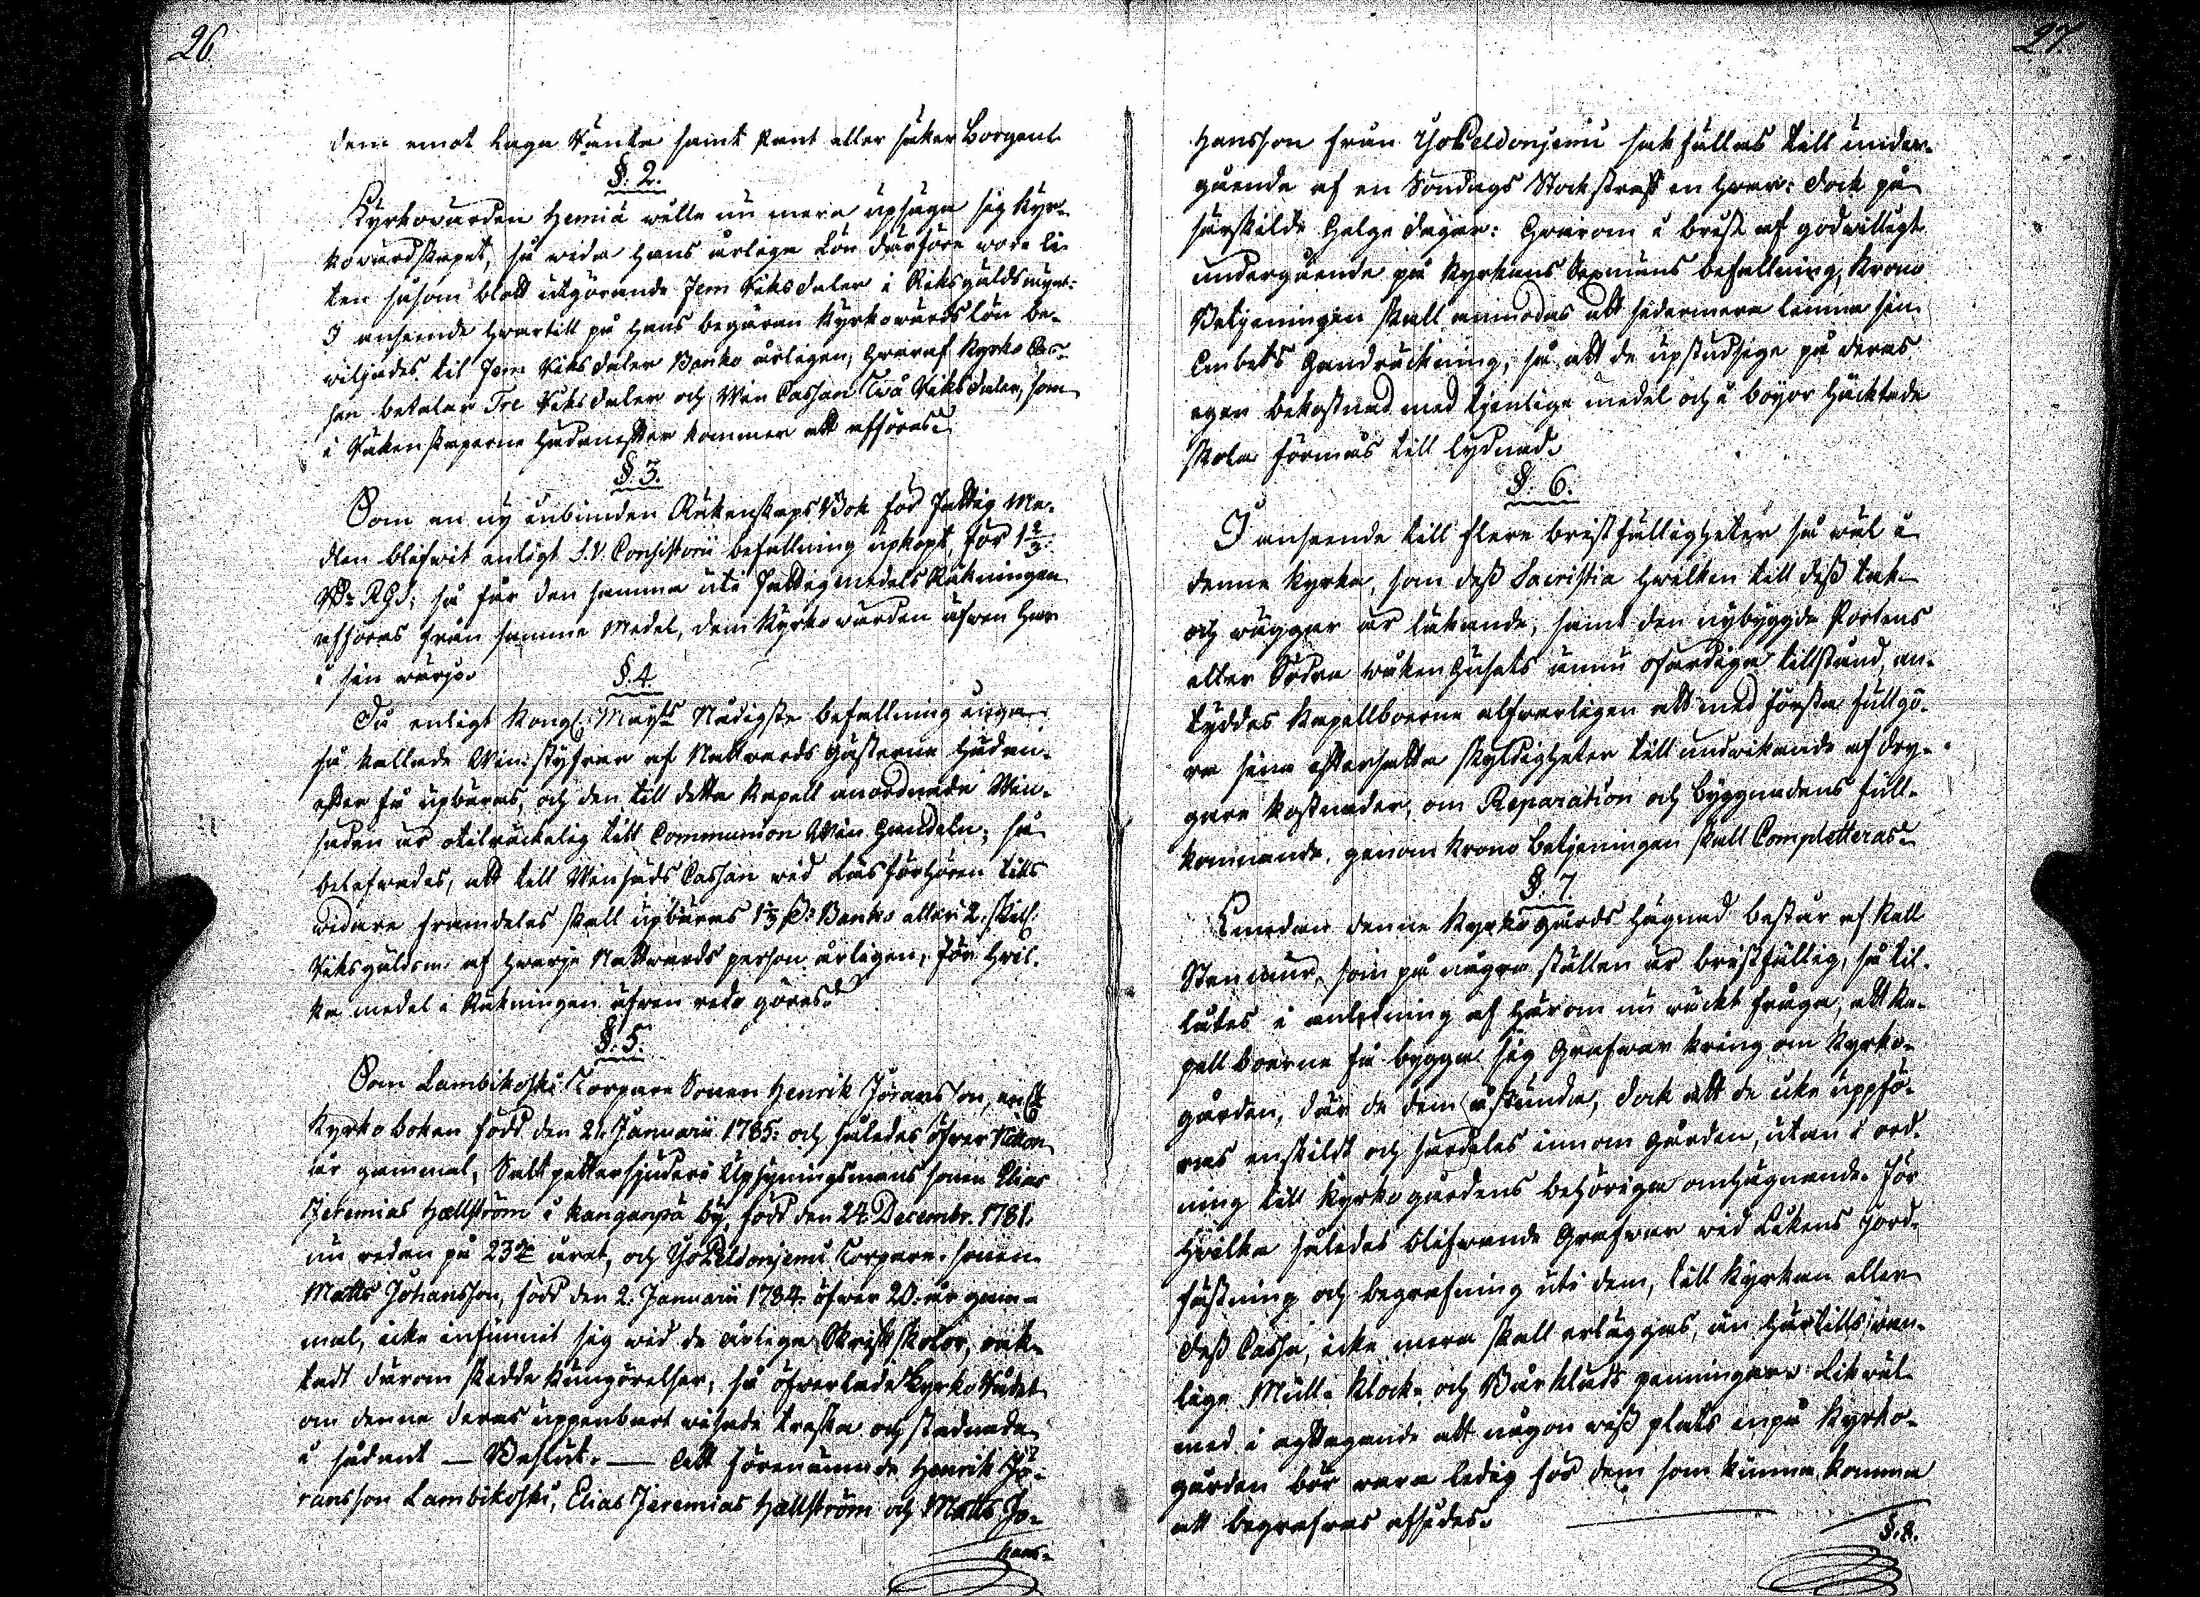 26.
dem emot laga Ränta samt Pant eller säker Borgen.
§. 2.
Kyrkovärden Hemiä wille nu mera upsäga sig Kyr-
kovärdskapet, så wida hans årliga Lön därföre wore li-
ten såsom blott utgörande Fem Riksdaler i Riksgäldsmynt:
I anseende hwartill på hans begäran Kyrkowärdslön be-
wiljades til Fem Riksdaler Banko årligen, hwaraf Kyrko Cas-
san betalar Tre Riksdaler och Win Cassan Två Riksdaler, som
i Räkenskaperne hädanefter kommer att afföras.
§. 3.
Som en ny inbunden Räkenskaps Bok för Fattig Me-
dlen blifwit enligt S. V. Consistorii befallning upköpt för 1 2/3
Rdr RGS; så får den samma uti Fattigmedels Räkningen
afföras från samma Medel, dem Kyrkowärden äfwen har
i sin wärjo.
§. 4.
Då enligt Kongl. Maijts Nådigste befallning inga
så kallade Win styfrar af Nattvards gästerna hädan-
efter få upbäras, och den till detta Kapell anordnade Win-
säden är otilräckelig till Communion Wins handeln; så
belefwades, att till Winsäds Cassan wid Läsförhören tills
widare framdeles skall upbäras 1 1/3 ß: Banko eller 2. skill.
Riksgäldsm. af hwarje Nattwards person årligen, för hvil-
ka medel i Räkningen äfwen redo göres.
§. 5.
Som Lambikoski Torpare Sonen Henrik Jöransson, enligt
Kyrko boken född den 21. Januarii 1785. och således öfwer Nitton
år gammal, Saltpettersjuderi Upsyningsmans sonen Elias
Jeremias Hællström i Kanganpä by, född den 24. Decembr. 1781.
nu redan på 23dje året, och Torpare-sonen
Matts Johansson, född den 2. Januarii 1784. öfwer 20. år gam-
mal, icke infunnit sig wid de årliga Skriftskolor, oak-
tadt därom skedde Kungörelser; så öfwerlade Kyrko Rådet
om denna deras uppenbart wisade treska och stadnade
i sådant — Beslut. — Att förenämnde Henrik Jö-
ransson Lambikoski, Elias Jeremias Hællström och Matts Jo-
hans-
27.
Hansson från sakfällas till under-
gående af en Söndags Stockstraff en hwar: dock på
särskilde Helge dagar: Hwarom i brist af godwilligt
undergående på Kyrkans Sexmans befallning, Krono
Betjeningen skall anmodas att sedermera lemna sin
Embets Handräckning, så att de upstudsige på deras
egen bekostnad med tjenlige medel och i bojor häcktade
skola förmås till lydnad.
§. 6.
I anseende till flere bristfälligheter så wäl å
denna Kyrka, som dess Sacristia hwilken till dess tak
och wäggar är läkande, samt den nybyggde Portens
eller Södra waken Husets ännu ofärdiga tillstånd, an-
tyddes Kapellboerne alfwarligen att med första fullgö-
ra sina eftersatta skyldigheter till undwikande af dry-
gare kostnader, om Reparation och byggnadens full-
komnande, genom Krono Betjeningen skall Completteras.
§. 7.
Emedan denne Kyrkogårds Hägnad består af Kall
Stenmur, som på några ställen är bristfällig, så til-
lätes i anledning af härom nu wäckt fråga, att Ka-
pell boerne få bygga sig Grafwar kring om Kyrko-
gården, där de dem åstunda, dock att de icke uppfö-
ras enskildt och särdeles innom gården, utan i ord-
ning till Kyrko gårdens behöriga omhägnande. För
hvilka således blifwande Grafwar wid Likens Jord-
fästning och begrafning uti dem, till Kyrkan eller
dess Cassa, icke mera skall erläggas, än härtills wan-
lige Mull- Klock- och Bårklads penningar. Likwäl
med i agttagande att någon wiss plats inpå Kyrko-
gården bör wara ledig för dem som kunna komma
att begrafwas afsides.
§. 8.